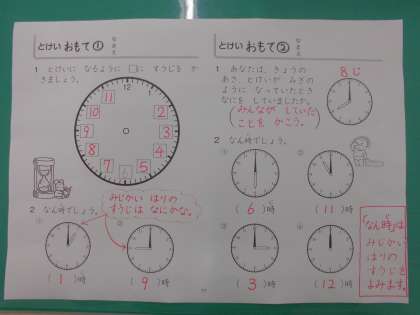 とけい おもて①
なまえ
1 とけいに なるように □に すうじを か
きましょう。
12
11
1
10
2
9
3
8
4
7
5
みじかい はりの
すうじは なにかな。
2 なん時でしょう。
①
②
( 1 )時
( 9 )時
とけい おもて②
なまえ
1 あなたは、きょうの
あさ、とけいが みぎの
ように なっていたとき
なにを していましたか。
8じ
(みんなが していた
ことを かこう。)
2 なん時でしょう。
①
②
( 6 )時
( 11 )時
③
④
( 3 )時
( 12 )時
「なん時」は
みじかい
はりの
すうじを
よみます。